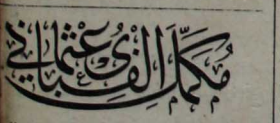 مكمل الفبای عثمانی